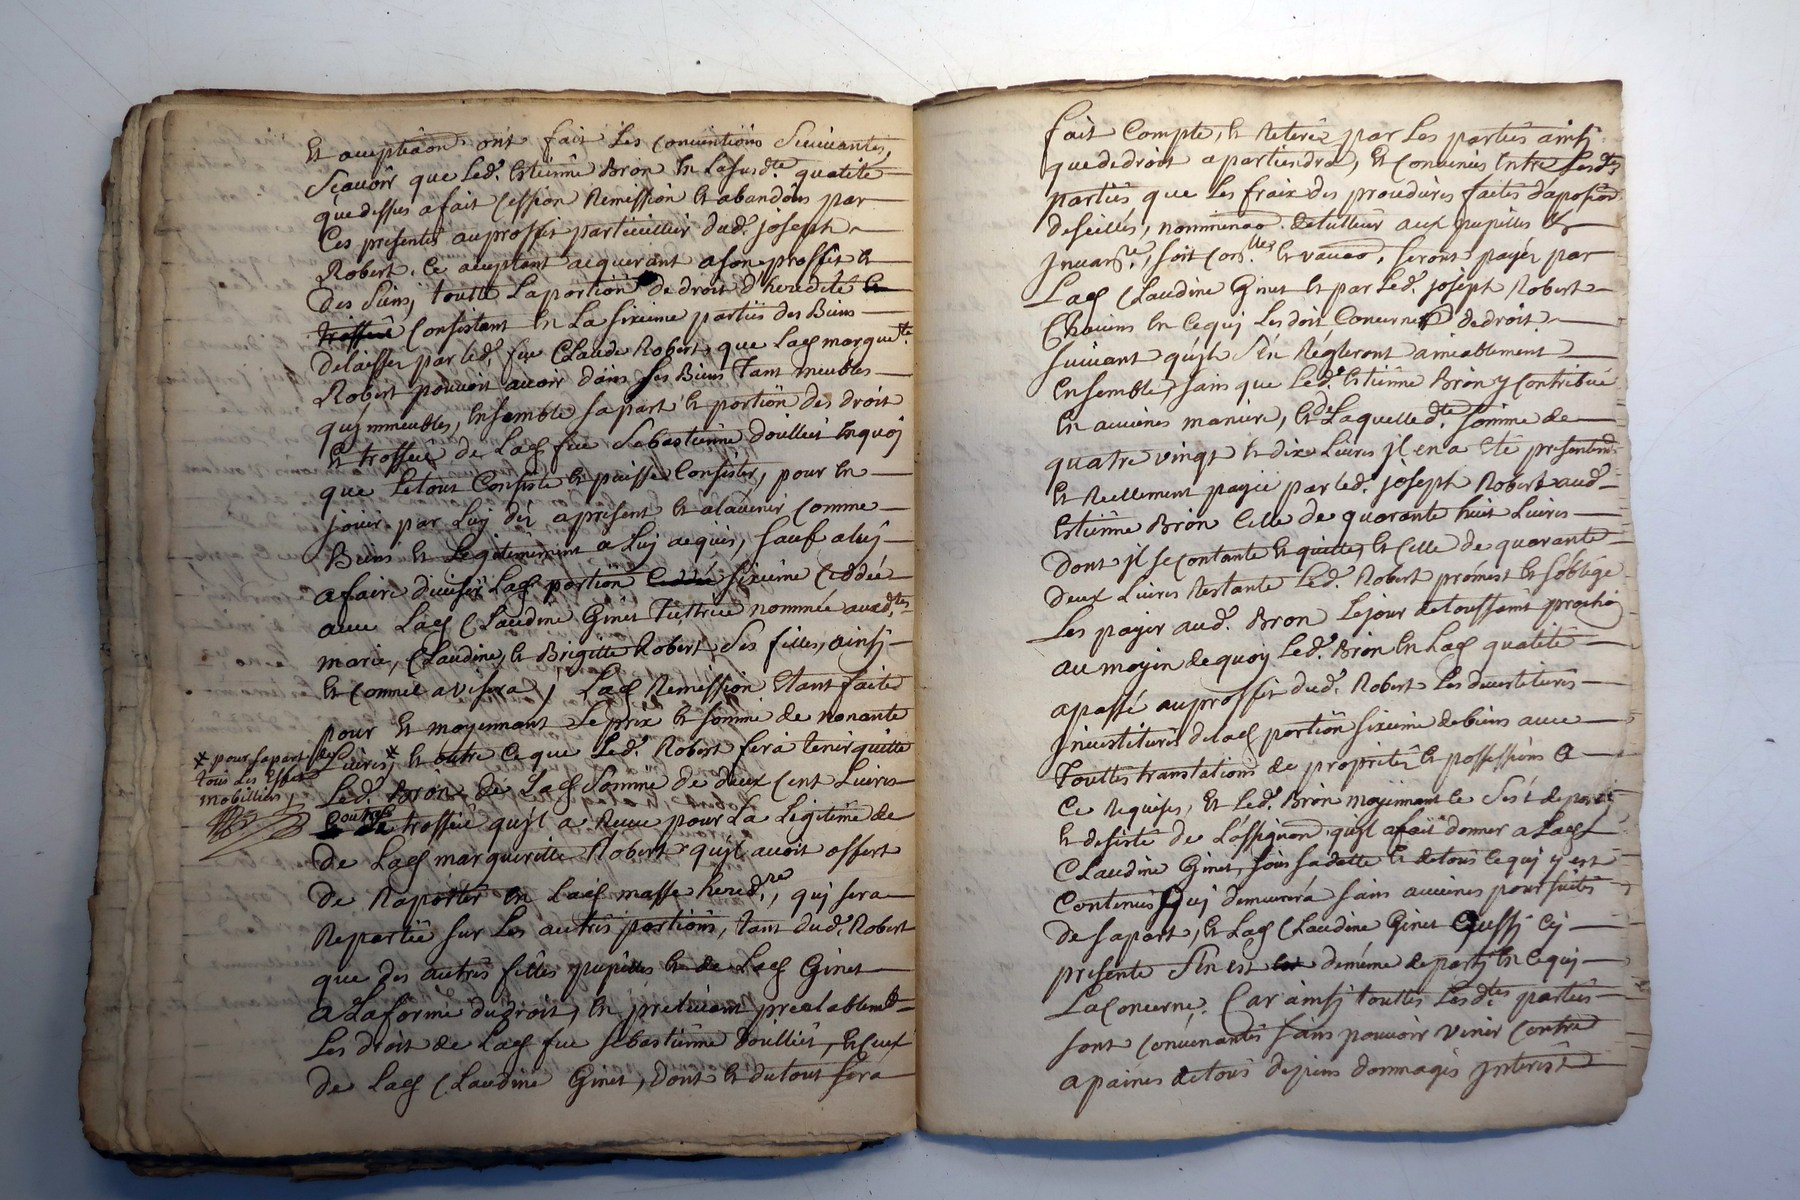 et acceptãon ont fait les Conventions Suivantes,
Sçavoir que led.t estienne Bron en la susd.te qualité
que dessus a fait Cession Remission et abandons par
Ces presentes au proffit particuillier dud.t joseph
Robert, ce acceptant acquerant a son proffit et
des Siens, toutte La portion de droit d'heredité et
trosseü Consistant en La sixieme parties des Biens
delaissés par led.t feu Claude Robert, que Lad marguer.te
Robert pouvoit avoir dans ses Biens Tant meubles
qu'jmmeubles, ensemble sa part et portion des droit
et trosseü de Lad feu Sebastienne doulliet en quoj
que Le tout Consiste et puisse Consister, pour en
jouir par Luy dez apresent et alavenir Comme
Biens et Legitimement a Luj acquis, sauf a luj
a faire diviser Lad portion sixieme Cedée
avec Lad Claudine Ginet Tuttrice nommée auxd.tes
marie, Claudine, et Brigitte Robert ses filles, ainsj
et comme avisera, Lad Remission étant faite
pour et moyennant Le prix et somme de nonante
* pour sa part de
tous les effets
mobilliers
Livres,* et outre ce que Led.t Robert fera tenir quitte
Led.t Bron de Lad Somme de deux Cent Livres
outre trosseü qu'jl a Reçue pour La Legitime de
de Lad marguerite Robert qu'jl avoit offert
de Raporter en Lad masse hered.re, qui sera
Repartie sur Les autres portions, tant dud.t Robert
que des autres filles pupilles et de Lad Ginet
a La forme du droit, en prelevant prealablem.t
Les droit de Lad feu sebastienne doulliet, et ceux
de Lad Claudine Ginet, dont et du tout sera
fait Compte, et Retiré par Les parties ainsj
que de droit apartiendra, et Convenus entre Lesd.tes
parties que Les fraix des procedures faites d'aposion
de sceillés, nomminãon de tutteur aux pupilles et
jnvan.re, soit Cors.lles et vacãon, seront payés par
Lad Claudine Ginet et par Led.t joseph Robert
Chacuns en Ce quj Les doit Concerner de droit
suivant qu'jls S'en Régleront amiablement
ensemble, sans que Led.t estienne Bron y Contribue
en aucunes maniere, et de Laquelle d.te somme de
quatre vingt et dix Livres jl en a été presentem.t
et Reellement payée par led.t joseph Robert aud.t
estienne Bron Celle de quarante huit Livres
dont jl se contante et quitte, et Celle de quarante
deux Livres Restante Led.t Robert promest et s'oblige
Les payer aud.t Bron Le jour de toussaint prochin
au moyen de quoy Led.t Bron en Lad qualité
a passé au proffit dud.t Robert Les devestitures
jnvestitures de Lad portion sixieme de biens avec
Touttes translations de proprietez et possessions a
Ce Requises, et Led.t Bron moyennant ce S'est deporté
et desisté de L'assignãon qu'jl a fait donner a Lad
Claudine Ginet, sous sa datte et de tous ce quj y est
Contenus quj demeurera sans aucunes poursuites
de sa part, et Lad Claudine Ginet aussj Cy
presente S'en est de même departj en ce quj
La Concerne. Car ainsj touttes Lesd.tes parties
sont Convenantes sans pouvoir venir Contre
a paines de tous depens dommages jnterest